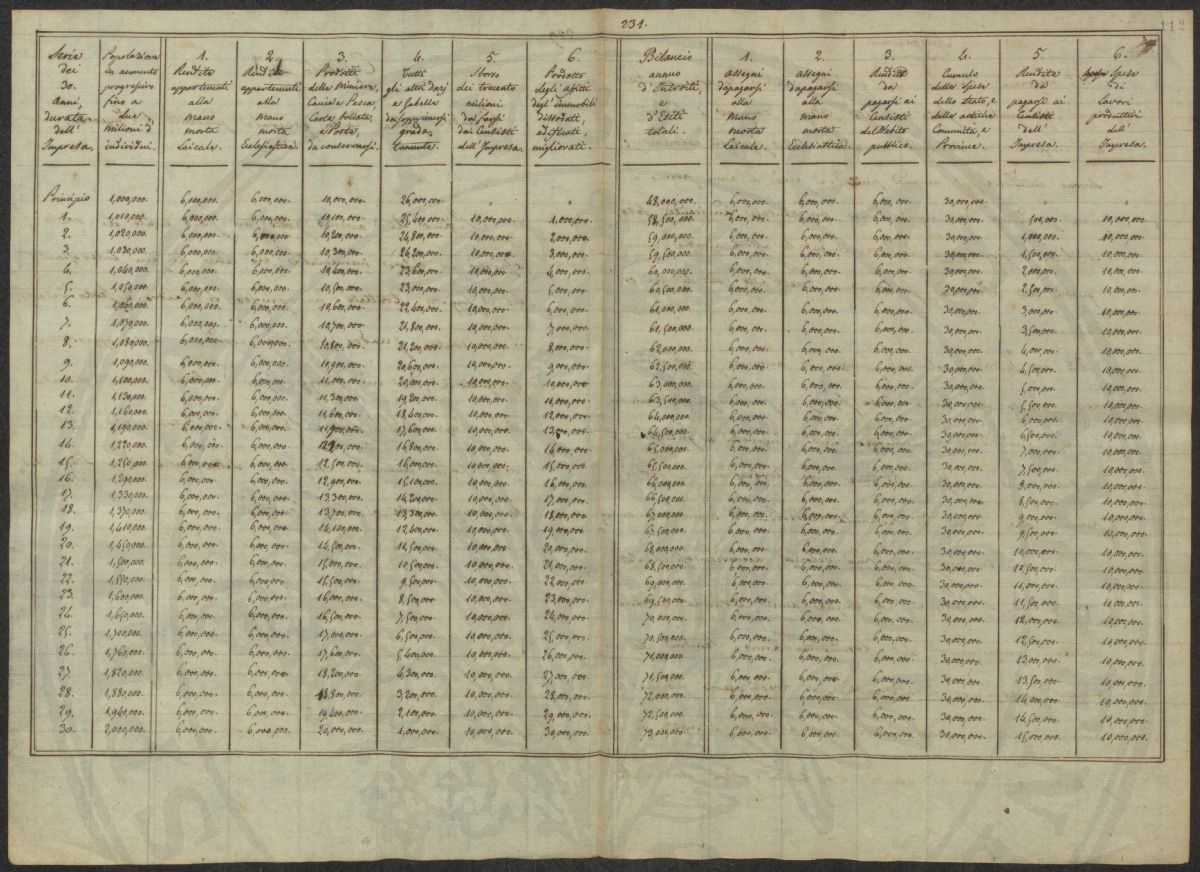 231.
112
Serie dei 30. Anni, durata dell' Impresa.
Popolazione in aumento progressivo fino a due milioni d' individui.
1. Rendita appartenenti alla mano morta Laicale.
2. Rendita appartenenti alla mano morta Ecclesiastica.
3. Prodotti delle Miniere, Caccia e Pesca, Carta bollata, e Posta, da conservarsi.
4. Tutti gli altri Dazj e Gabelle da sopprimersi gradatamente.
5. Sborso dei trecento milioni da farsi dai Censisti dell' Impresa.
6. Prodotto degli affitti degl' immobili dissodati, edificati, migliorati.
Bilancio annuo d' Introiti, e d' Esiti totali.
1. Assegni da pagarsi alla Mano Morta Laicale.
2. Assegni da pagarsi alla mano morta Ecclesiastica.
3. Rendita da pagarsi ai Censisti del Debito pubblico.
4. Cumulo delle Spese dello Stato, e delle antiche Comunità, e Province.
5. Rendita da pagarsi ai Censisti dell' Impresa.
6. Spese di lavori produttivi dell' Impresa.
Principio 1,000,000. 6,000,000. 6,000,000. 10,000,000. 26,000,000. " " 48,000,000. 6,000,000. 6,000,000. 6,000,000. 30,000,000. " "
1. 1,010,000. 6,000,000. 6,000,000. 10,100,000. 25,400,000. 10,000,000. 1,000,000. 58,500,000. 6,000,000. 6,000,000. 6,000,000. 30,000,000. 500,000. 10,000,000.
2. 1,020,000. 6,000,000. 6,000,000. 10,200,000. 24,800,000. 10,000,000. 2,000,000. 59,000,000. 6,000,000. 6,000,000. 6,000,000. 30,000,000. 1,000,000. 10,000,000.
3. 1,030,000. 6,000,000. 6,000,000. 10,300,000. 24,200,000. 10,000,000. 3,000,000. 59,500,000. 6,000,000. 6,000,000. 6,000,000. 30,000,000. 1,500,000. 10,000,000.
4. 1,040,000. 6,000,000. 6,000,000. 10,400,000. 23,600,000. 10,000,000. 4,000,000. 60,000,000. 6,000,000. 6,000,000. 6,000,000. 30,000,000. 2,000,000. 10,000,000.
5. 1,050,000. 6,000,000. 6,000,000. 10,500,000. 23,000,000. 10,000,000. 5,000,000. 60,500,000. 6,000,000. 6,000,000. 6,000,000. 30,000,000. 2,500,000. 10,000,000.
6. 1,060,000. 6,000,000. 6,000,000. 10,600,000. 22,400,000. 10,000,000. 6,000,000. 61,000,000. 6,000,000. 6,000,000. 6,000,000. 30,000,000. 3,000,000. 10,000,000.
7. 1,070,000. 6,000,000. 6,000,000. 10,700,000. 21,800,000. 10,000,000. 7,000,000. 61,500,000. 6,000,000. 6,000,000. 6,000,000. 30,000,000. 3,500,000. 10,000,000.
8. 1,080,000. 6,000,000. 6,000,000. 10,800,000. 21,200,000. 10,000,000. 8,000,000. 62,000,000. 6,000,000. 6,000,000. 6,000,000. 30,000,000. 4,000,000. 10,000,000.
9. 1,090,000. 6,000,000. 6,000,000. 10,900,000. 20,600,000. 10,000,000. 9,000,000. 62,500,000. 6,000,000. 6,000,000. 6,000,000. 30,000,000. 4,500,000. 10,000,000.
10. 1,100,000. 6,000,000. 6,000,000. 11,000,000. 20,000,000. 10,000,000. 10,000,000. 63,000,000. 6,000,000. 6,000,000. 6,000,000. 30,000,000. 5,000,000. 10,000,000.
11. 1,130,000. 6,000,000. 6,000,000. 11,300,000. 19,200,000. 10,000,000. 11,000,000. 63,500,000. 6,000,000. 6,000,000. 6,000,000. 30,000,000. 5,500,000. 10,000,000.
12. 1,160,000. 6,000,000. 6,000,000. 11,600,000. 18,400,000. 10,000,000. 12,000,000. 64,000,000. 6,000,000. 6,000,000. 6,000,000. 30,000,000. 6,000,000. 10,000,000.
13. 1,190,000. 6,000,000. 6,000,000. 11,900,000. 17,600,000. 10,000,000. 13,000,000. 64,500,000. 6,000,000. 6,000,000. 6,000,000. 30,000,000. 6,500,000. 10,000,000.
14. 1,220,000. 6,000,000. 6,000,000. 12,200,000. 16,800,000. 10,000,000. 14,000,000. 65,000,000. 6,000,000. 6,000,000. 6,000,000. 30,000,000. 7,000,000. 10,000,000.
15. 1,250,000. 6,000,000. 6,000,000. 12,500,000. 16,000,000. 10,000,000. 15,000,000. 65,500,000. 6,000,000. 6,000,000. 6,000,000. 30,000,000. 7,500,000. 10,000,000.
16. 1,290,000. 6,000,000. 6,000,000. 12,900,000. 15,100,000. 10,000,000. 16,000,000. 66,000,000. 6,000,000. 6,000,000. 6,000,000. 30,000,000. 8,000,000. 10,000,000.
17. 1,330,000. 6,000,000. 6,000,000. 13,300,000. 14,200,000. 10,000,000. 17,000,000. 66,500,000. 6,000,000. 6,000,000. 6,000,000. 30,000,000. 8,500,000. 10,000,000.
18. 1,370,000. 6,000,000. 6,000,000. 13,700,000. 13,300,000. 10,000,000. 18,000,000. 67,000,000. 6,000,000. 6,000,000. 6,000,000. 30,000,000. 9,000,000. 10,000,000.
19. 1,410,000. 6,000,000. 6,000,000. 14,100,000. 12,400,000. 10,000,000. 19,000,000. 67,500,000. 6,000,000. 6,000,000. 6,000,000. 30,000,000. 9,500,000. 10,000,000.
20. 1,450,000. 6,000,000. 6,000,000. 14,500,000. 11,500,000. 10,000,000. 20,000,000. 68,000,000. 6,000,000. 6,000,000. 6,000,000. 30,000,000. 10,000,000. 10,000,000.
21. 1,500,000. 6,000,000. 6,000,000. 15,000,000. 10,500,000. 10,000,000. 21,000,000. 68,500,000. 6,000,000. 6,000,000. 6,000,000. 30,000,000. 10,500,000. 10,000,000.
22. 1,550,000. 6,000,000. 6,000,000. 15,500,000. 9,500,000. 10,000,000. 22,000,000. 69,000,000. 6,000,000. 6,000,000. 6,000,000. 30,000,000. 11,000,000. 10,000,000.
23. 1,600,000. 6,000,000. 6,000,000. 16,000,000. 8,500,000. 10,000,000. 23,000,000. 69,500,000. 6,000,000. 6,000,000. 6,000,000. 30,000,000. 11,500,000. 10,000,000.
24. 1,650,000. 6,000,000. 6,000,000. 16,500,000. 7,500,000. 10,000,000. 24,000,000. 70,000,000. 6,000,000. 6,000,000. 6,000,000. 30,000,000. 12,000,000. 10,000,000.
25. 1,700,000. 6,000,000. 6,000,000. 17,000,000. 6,500,000. 10,000,000. 25,000,000. 70,500,000. 6,000,000. 6,000,000. 6,000,000. 30,000,000. 12,500,000. 10,000,000.
26. 1,760,000. 6,000,000. 6,000,000. 17,600,000. 5,400,000. 10,000,000. 26,000,000. 71,000,000. 6,000,000. 6,000,000. 6,000,000. 30,000,000. 13,000,000. 10,000,000.
27. 1,820,000. 6,000,000. 6,000,000. 18,200,000. 4,300,000. 10,000,000. 27,000,000. 71,500,000. 6,000,000. 6,000,000. 6,000,000. 30,000,000. 13,500,000. 10,000,000.
28. 1,880,000. 6,000,000. 6,000,000. 18,800,000. 3,200,000. 10,000,000. 28,000,000. 72,000,000. 6,000,000. 6,000,000. 6,000,000. 30,000,000. 14,000,000. 10,000,000.
29. 1,940,000. 6,000,000. 6,000,000. 19,400,000. 2,100,000. 10,000,000. 29,000,000. 72,500,000. 6,000,000. 6,000,000. 6,000,000. 30,000,000. 14,500,000. 10,000,000.
30. 2,000,000. 6,000,000. 6,000,000. 20,000,000. 1,000,000. 10,000,000. 30,000,000. 73,000,000. 6,000,000. 6,000,000. 6,000,000. 30,000,000. 15,000,000. 10,000,000.